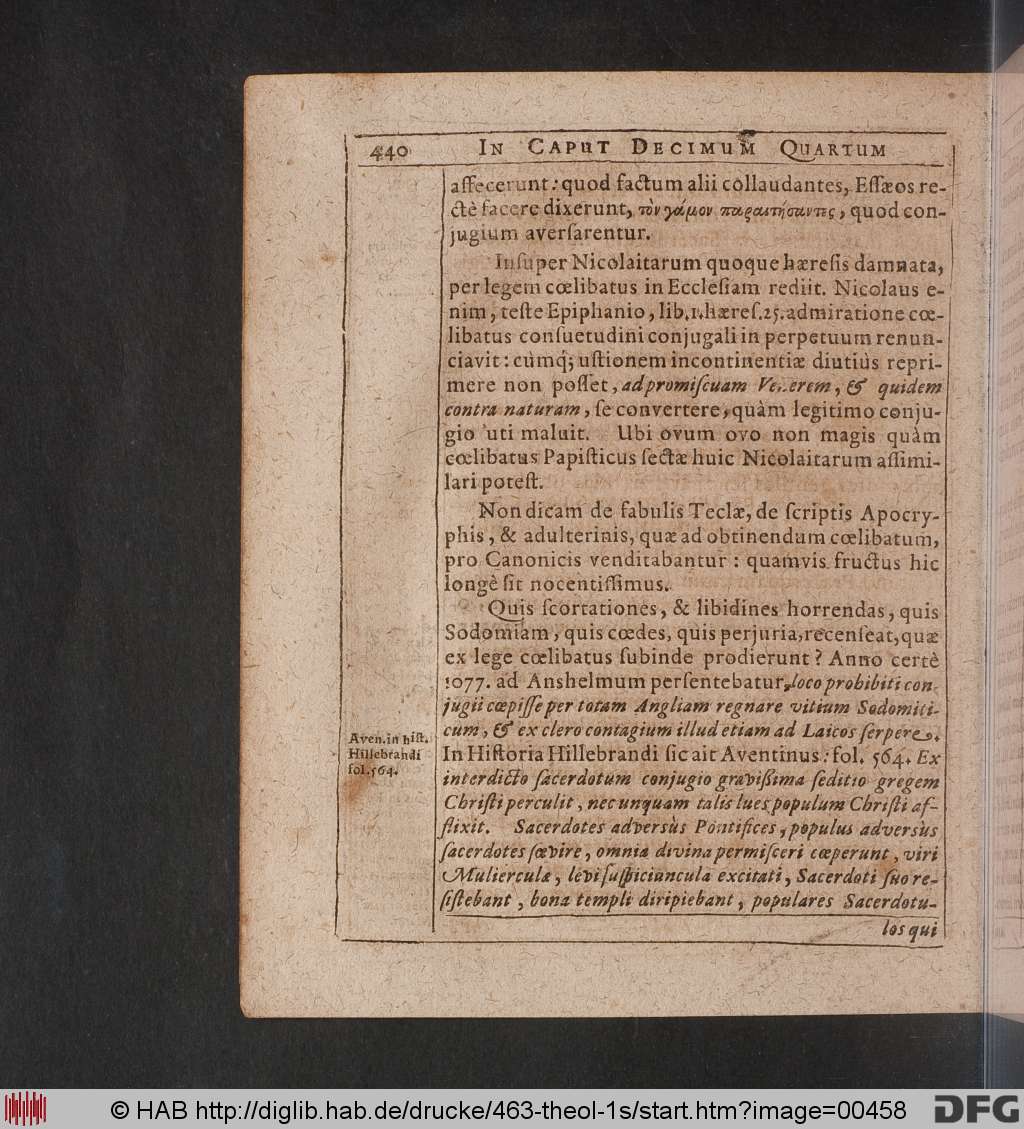 440 IN CAPUT DECIMUM QUARTUM
affecerunt: quod factum alii collaudantes, Essæos re-
ctè facere dixerunt, τὸν γάμον παραιτήσαντες, quod con-
jugium aversarentur.
Insuper Nicolaitarum quoque hæresis damnata,
per legem cœlibatus in Ecclesiam rediit. Nicolaus e-
nim, teste Epiphanio, lib. 1. hæres. 25. admiratione cœ-
libatus consuetudini conjugali in perpetuum renun-
ciavit: cùmq́; ustionem incontinentiæ diutiùs repri-
mere non posset, ad promiscuam Venerem, & quidem
contra naturam, se convertere, quàm legitimo conju-
gio uti maluit. Ubi ovum ovo non magis quàm
cœlibatus Papisticus sectæ huic Nicolaitarum assimi-
lari potest.
Non dicam de fabulis Teclæ, de scriptis Apocry-
phis, & adulterinis, quæ ad obtinendum cœlibatum,
pro Canonicis venditabantur: quamvis fructus hic
longè sit nocentissimus.
Quis scortationes, & libidines horrendas, quis
Sodomiam, quis cœdes, quis perjuria, recenseat, quæ
ex lege cœlibatus subinde prodierunt? Anno certè
1077. ad Anshelmum persentebatur, loco prohibiti con-
jugii cœpisse per totam Angliam regnare vitium Sodomiti-
cum, & ex clero contagium illud etiam ad Laicos serpere.
Aven. in hist.
Hillebrandi
fol. 564.
In Historia Hillebrandi sic ait Aventinus: fol. 564. Ex
interdicto sacerdotum conjugio gravißima seditio gregem
Christi perculit, nec unquam talis lues populum Christi af-
flixit. Sacerdotes adversùs Pontifices, populus adversùs
sacerdotes sævire, omnia divina permisceri cœperunt, viri
Mulierculæ, levi suspiciuncula excitati, Sacerdoti suo re-
sistebant, bona templi diripiebant, populares Sacerdotu-
los qui
© HAB http://diglib.hab.de/drucke/463-theol-1s/start.htm?image=00458
DFG